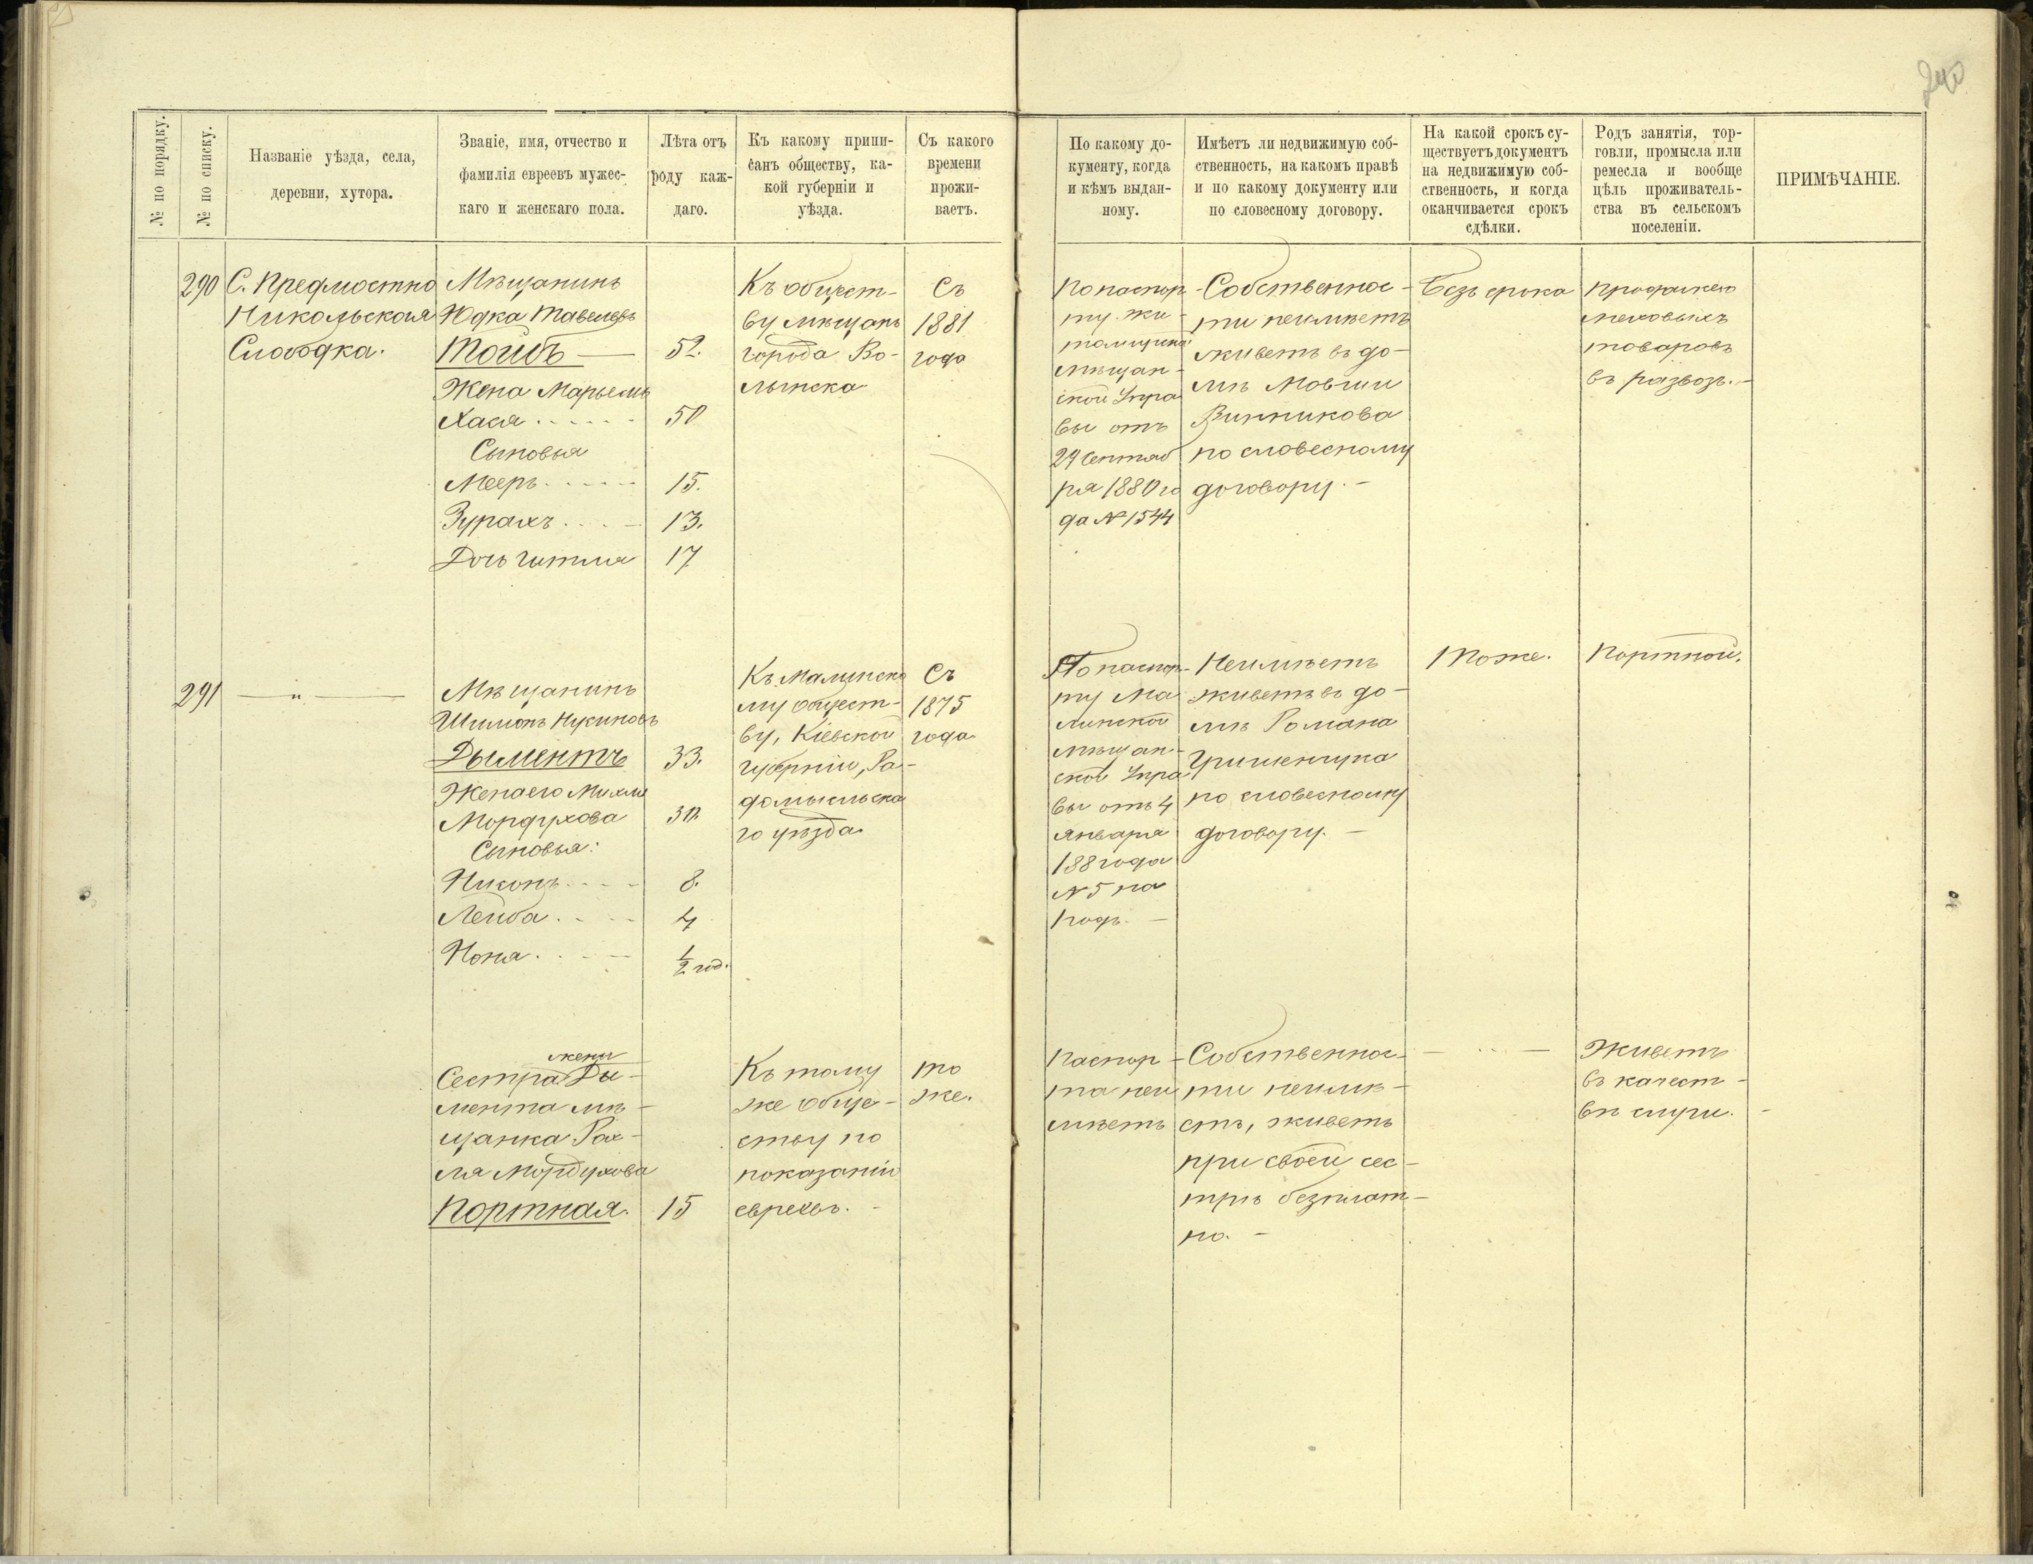 240
№ по порядку.
№ по списку.
Названіе уѣзда, села,
деревни, хутора.
Званіе, имя, отчество и
фамилія евреевъ мужес-
каго и женскаго пола.
Лѣта отъ
роду каж-
даго.
Къ какому припи-
санъ обществу, ка-
кой губерніи и
уѣзда.
Съ какого
времени
прожи-
ваетъ.
По какому до-
кументу, когда
и кѣмъ выдан-
ному.
Имѣетъ ли недвижимую соб-
ственность, на какомъ правѣ
и по какому документу или
по словесному договору.
На какой срокъ су-
ществуетъ документъ
на недвижимую соб-
ственность, и когда
оканчивается срокъ
сдѣлки.
Родъ занятія, тор-
говли, промысла или
ремесла и вообще
цѣль проживатель-
ства въ сельскомъ
поселеніи.
ПРИМѢЧАНІЕ.
290
С. Предмостно
Никольская
Слободка.
Мѣщанинъ
Юдка Тавелевъ
Тойбъ — 52.
Жена Марьемъ
Хася 50
Сыновья
Мееръ 15.
Зурахъ 13.
Дочь Гитля 17
Къ общест-
ву мѣщанъ
города Во-
лынска
Съ
1881
года
По паспор-
ту Жи-
томирской
мѣщан-
ской Упра
вы отъ
29 Сентяб
ря 1880 го
да № 1544
Собственнос-
ти неимѣетъ
живетъ въ до-
мѣ Мовши
Винникова
по словесному
договору. —
Безъ срока
Продажею
мѣховыхъ
товаровъ
въ развозъ. —
291
— " —
Мѣщанинъ
Шимонъ Нусиновъ
Дыментъ 33.
Жена его Михля
Мордухова 30
Сыновья:
Нисонъ 8.
Лейба 4
Нона 1/2 год.
Къ Малинско
му общест-
ву, Кіевской
губерніи, Ра-
домысльска
го уѣзда
Съ
1875
года
По паспор-
ту Ма
линской
мѣщан-
ской Упра
вы отъ 4
Января
188 года
№ 5 на
годъ. —
Неимѣетъ
живетъ въ до-
мѣ Романа
Гришенчука
по словесному
договору. —
Тоже.
Портной.
жены
Сестра Ды-
мента мѣ-
щанка Рах-
ля Мордухова
Портная. 15
Къ тому
же обще-
ству по
показанію
евреевъ. -
то
же.
Паспор-
та неи
мѣетъ
Собственнос-
ти неимѣ-
етъ, живетъ
при своей сес-
трѣ безплат-
но. —
— " —
Живетъ
въ качест-
вѣ слуги. -